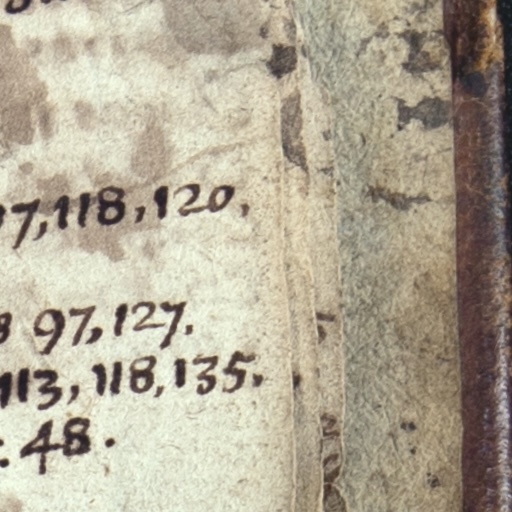 7, 118, 120,
97, 127.
113, 118, 135.
48.